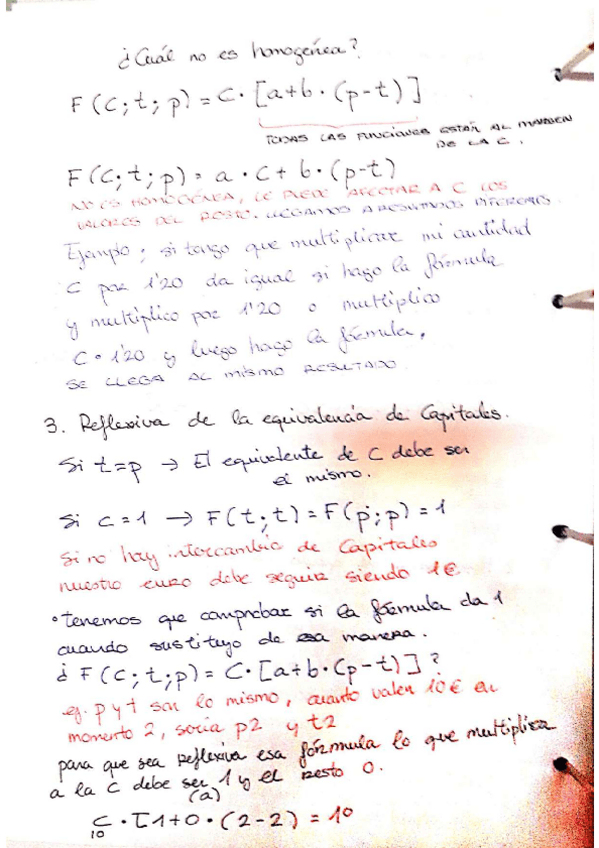 ¿Cuál no es homogénea?
F(C;t;p) = C·[a+b·(p-t)]
TODAS LAS FUNCIONES ESTÁN AL MARGEN
DE LA C.
F(C;t;p) = a·C + b·(p-t)
NO ES HOMOGÉNEA, LE PUEDE AFECTAR A C LOS
VALORES DEL RESTO. LLEGAMOS A RESULTADOS DIFERENTES.
Ejemplo; si tengo que multiplicar mi cantidad
C por 1'20 da igual si hago la fórmula
y multiplico por 1'20 o multiplico
C·1'20 y luego hago la fórmula,
SE LLEGA AL MISMO RESULTADO.
3. Reflexiva de la equivalencia de Capitales.
Si t=p → El equivalente de C debe ser
el mismo.
Si C=1 → F(t;t) = F(p;p) = 1
Si no hay intercambio de Capitales
nuestro euro debe seguir siendo 1€
• tenemos que comprobar si la fórmula da 1
cuando sustituyo de esa manera.
¿F(C;t;p) = C·[a+b·(p-t)]?
eg. p y t son lo mismo, cuanto valen 10€ en
momento 2, sería p2 y t2
para que sea reflexiva esa fórmula lo que multiplica
a la C debe ser 1 y el resto 0.
(a)
C·[1+0·(2-2) = 10
10